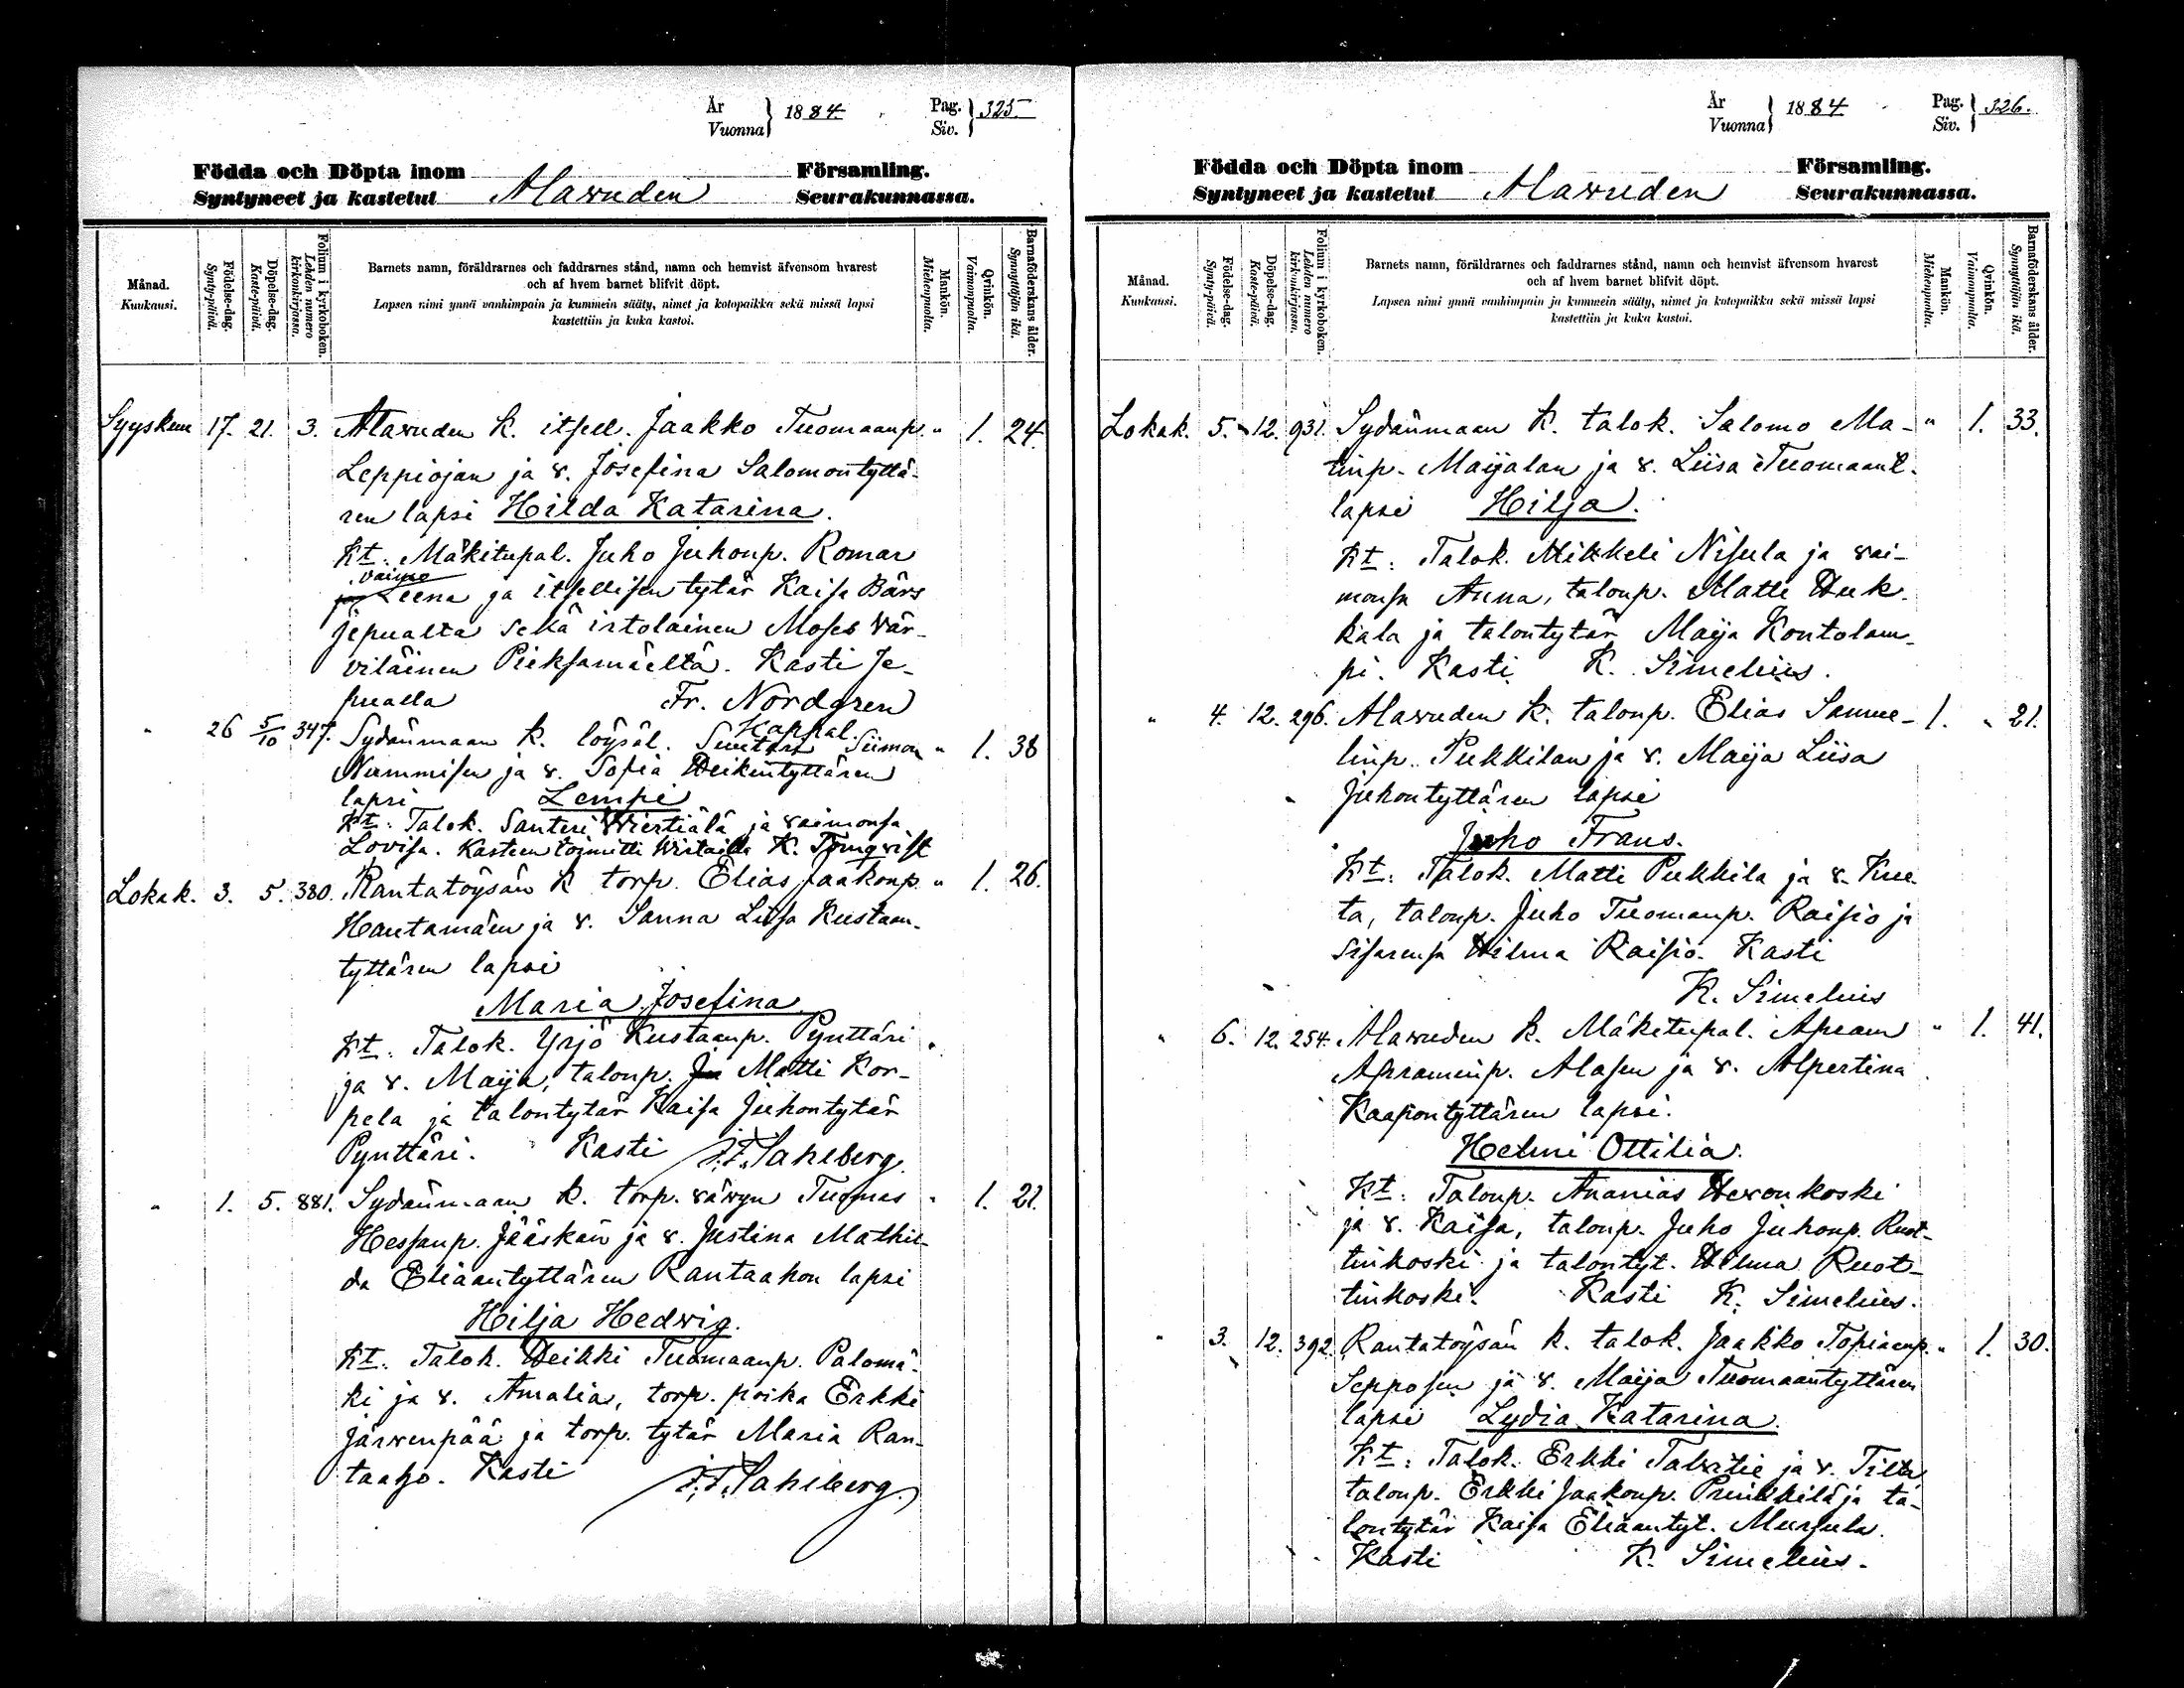 År
Vuonna } 1884.
Pag.
Siv. } 325.
Födda och Döpta inom Församling.
Syntyneet ja kastetut Alavuden Seurakunnassa.
Månad.
Kuukausi.
Födelse-dag.
Synty-päivä.
Döpelse-dag.
Kaste-päivä.
Folium i kyrkoboken.
Lehden numero
kirkonkirjassa.
Barnets namn, föräldrarnes och faddrarnes stånd, namn och hemvist äfvensom hvarest
och af hvem barnet blifvit döpt.
Lapsen nimi ynnä vanhimpain ja kummein sääty, nimet ja kotopaikka sekä missä lapsi
kastettiin ja kuka kastoi.
Mankön.
Miehenpuolta.
Qvinkön.
Vaimonpuolta.
Barnaföderskans ålder.
Synnyttäjän ikä.
Syyskuu 17. 21. 3. Alavuden k. itsell. Jaakko Tuomaanp. " 1. 24.
Leppiojan ja v. Josefina Salomontyttä-
ren lapsi Hilda Katarina.
Kt. Mäkitupal. Juho Juhonp. Romar
vaimo
Leena ja itsellisen tytär Kaisa Bärs
Jepualta sekä irtolainen Moses Vär-
viläinen Pieksamäeltä. Kasti Je-
pualla Fr. Nordgren
Kappal.
" 26 5/10 347. Sydänmaan k. löysäl. Suutari Siimon " 1. 38
Nummisen ja v. Sofia Heikintyttären
lapsi Lempi
Kt: Talok. Santeri Wiertiälä ja vaimonsa
Lovisa. Kasteen toimitti Wirtailla K. Törnqvist
Lokak. 3. 5. 380. Rantatöysän k torp. Elias Jaakonp. " 1. 26.
Hautamäen ja v. Sanna Liisa Kustaan-
tyttären lapsi
Maria Josefina.
Kt: Talok. Yrjö Kustaanp. Pynttäri
ja v. Maija, talonp. Ju Matti Kor-
pela ja talontytär Kaisa Juhontytär
Pynttäri. Kasti J.F. Sahlberg.
" 1. 5. 881. Sydänmaan k. torp. vävyn Tuomas " 1. 21.
Hessanp. Jääskän ja v. Justina Mathil-
da Eliaantyttären Rantaahon lapsi
Hilja Hedvig.
Kt: Talok. Heikki Tuomaanp. Palomä-
ki ja v. Amalia, torp. poika Erkki
Järvenpää ja torp. tytär Maria Ran-
taaho. Kasti J.F. Sahlberg.
År
Vuonna } 1884
Pag.
Siv. } 326.
Födda och Döpta inom Församling.
Syntyneet ja kastetut Alavuden Seurakunnassa.
Månad.
Kuukausi.
Födelse-dag.
Synty-päivä.
Döpelse-dag.
Kaste-päivä.
Folium i kyrkoboken.
Lehden numero
kirkonkirjassa.
Barnets namn, föräldrarnes och faddrarnes stånd, namn och hemvist äfvensom hvarest
och af hvem barnet blifvit döpt.
Lapsen nimi ynnä vanhimpain ja kummein sääty, nimet ja kotopaikka sekä missä lapsi
kastettiin ja kuka kastoi.
Mankön.
Miehenpuolta.
Qvinkön.
Vaimonpuolta.
Barnaföderskans ålder.
Synnyttäjän ikä.
Lokak. 5. 12. 931. Sydänmaan k. talok. Salomo Ma- " 1. 33.
tinp. Maijalan ja v. Liisa Tuomaant.
lapsi Hilja.
Kt: Talok. Mikkeli Nisula ja vai-
monsa Anna, talonp. Matti Huk-
kala ja talontytär Maija Kontolam-
pi. Kasti K. Simelius.
" 4. 12. 296. Alavuden k. talonp. Elias Samue- 1. " 21.
linp. Pukkilan ja v. Maija Liisa
Juhontyttären lapsi
Juho Frans.
Kt: Talok. Matti Pukkila ja v. Kree-
ta, talonp. Juho Tuomaanp. Raisio ja
sisarensa Hilma Raisio. Kasti
K. Simelius
" 6. 12. 254. Alavuden k. Mäkitupal. Apram " 1. 41.
Apraminp. Alasen ja v. Alpertina
Kaaponyttären lapsi.
Helmi Ottilia.
Kt: Talonp. Ananias Hevonkoski
ja v. Kaisa, talonp. Juho Juhonp. Ruot-
tinkoski ja talontyt. Hilma Ruot-
tinkoski. Kasti K. Simelius.
" 3. 12. 392. Rantatöysän k. talok. Jaakko Topiaanp. " 1. 30.
Sepposen ja v. Maija Tuomaantyttären
lapsi Lydia Katarina.
Kt: Talok. Erkki Talvitie ja v. Tilta
talonp. Erkki Jaakonp. Prinkkilä ja ta-
lontytär Kaisa Eliaantyt. Mursula.
Kasti K. Simelius.